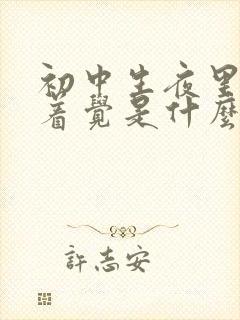 初中生夜里
着覺是什麼
許志安